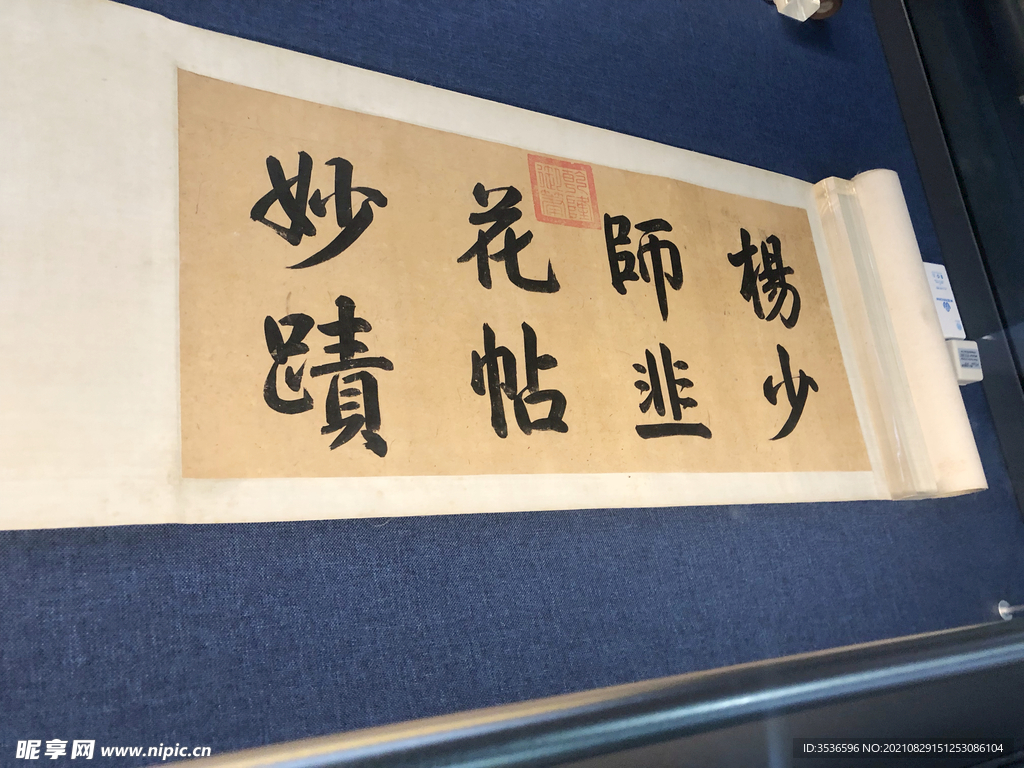 楊少
師韭
花帖
妙蹟
昵享网 www.nipic.cn
ID:3536596 NO:20210829151253086104